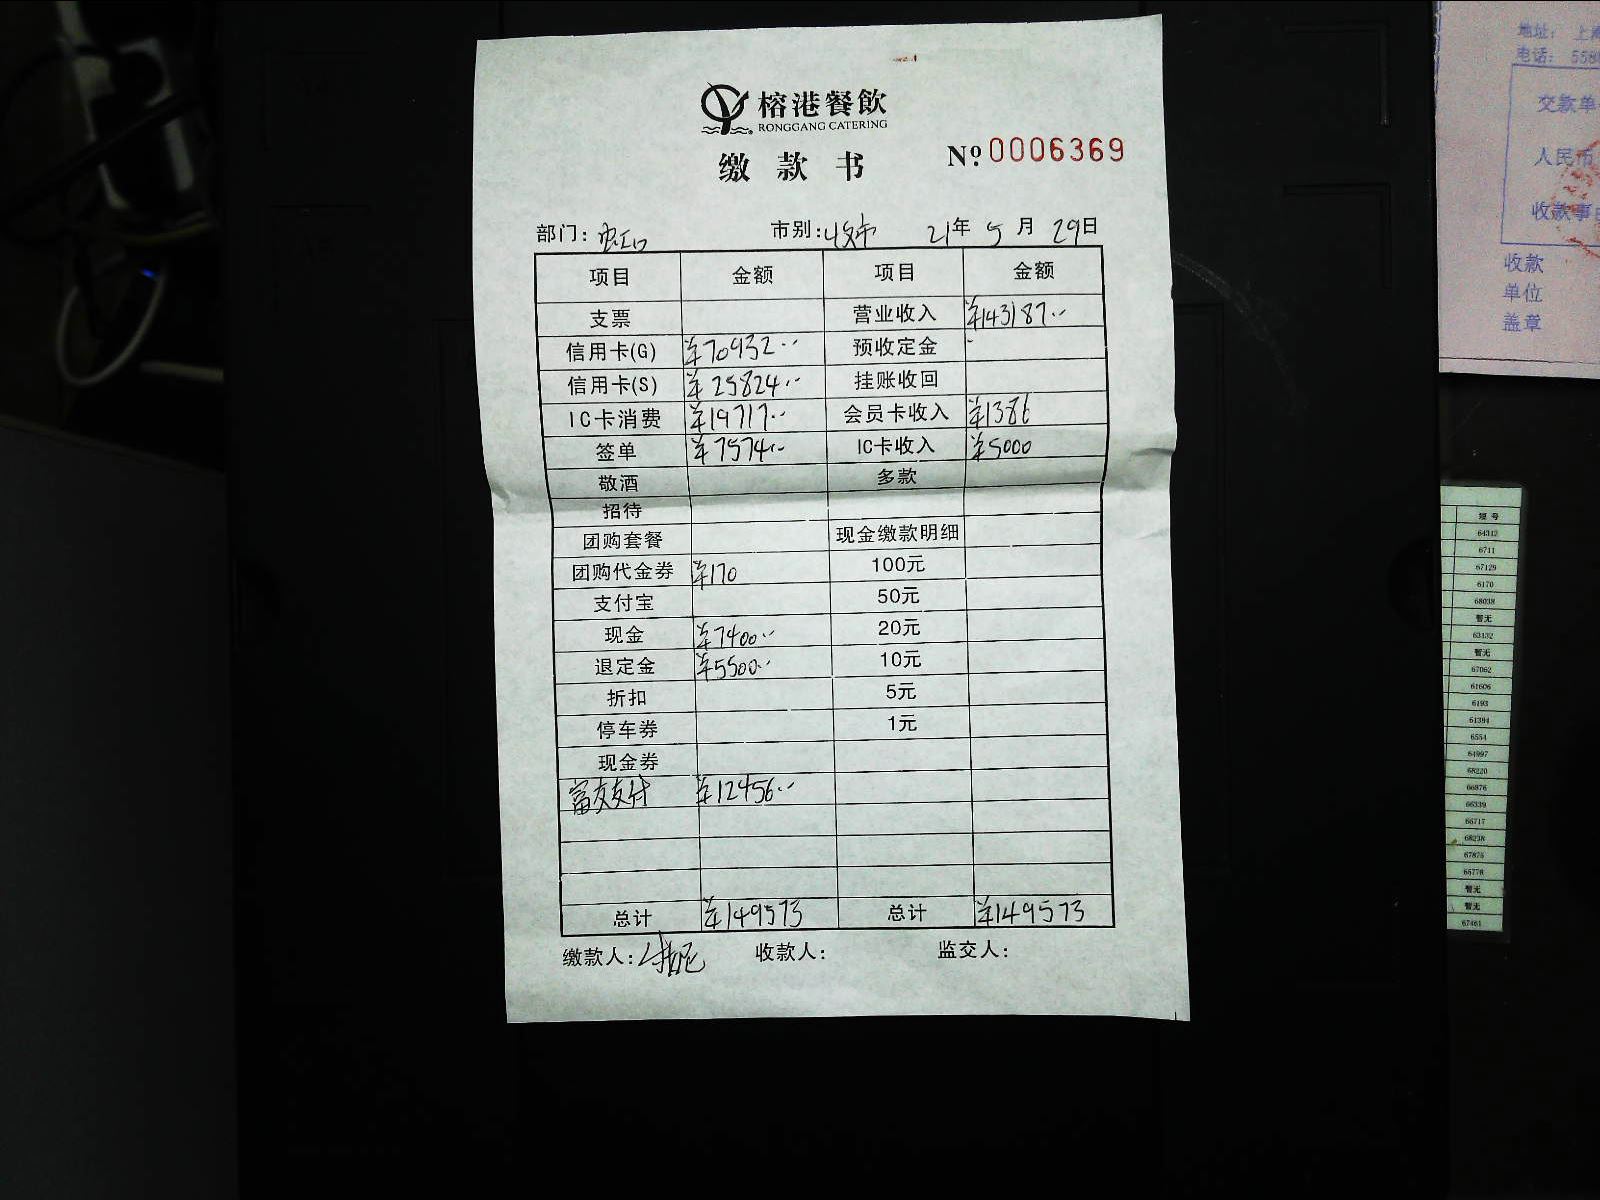 榕港餐飲
RONGGANG CATERING
缴款书 Nº 0006369
部门: 虹口 市别: 收市 21年 5月 29日
项目 金额 项目 金额
支票 营业收入 ¥143187..
信用卡(G) ¥70932.. 预收定金 -
信用卡(S) ¥25824.. 挂账收回
IC卡消费 ¥19717.. 会员卡收入 ¥1386
签单 ¥7574.. IC卡收入 ¥5000
敬酒 多款
招待
团购套餐 现金缴款明细
团购代金券 ¥170 100元
支付宝 50元
现金 ¥7400.. 20元
退定金 ¥5500.. 10元
折扣 5元
停车券 1元
现金券
富友支付 ¥12456..
总计 ¥149573 总计 ¥149573
缴款人: 收款人: 监交人:
地址: 上海
电话: 558
交款单
人民币
收款事由
收款
单位
盖章
短号
64312
6711
67129
6170
68038
暂无
63132
暂无
67062
61606
6193
61394
6554
64997
68220
66876
66339
66717
68238
67875
65778
暂无
暂无
67461